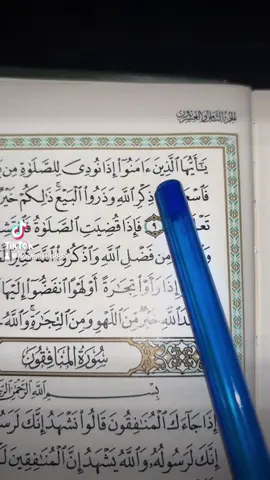 الجزء الثامن والعشرون
يَٰٓأَيُّهَا ٱلَّذِينَ ءَامَنُوٓاْ إِذَا نُودِيَ لِلصَّلَوٰةِ مِن
ٱللَّهِ وَذَرُواْ ٱلْبَيْعَ ۚ ذَٰلِكُمْ خَيْرٌ
٩ فَإِذَا قُضِيَتِ ٱلصَّلَوٰةُ
مِن فَضْلِ ٱللَّهِ وَٱذْكُرُواْ
رَأَوْاْ تِجَٰرَةً أَوْ لَهْوًا ٱنفَضُّوٓاْ إِلَيْهَا
خَيْرٌ مِّنَ ٱللَّهْوِ وَمِنَ ٱلتِّجَٰرَةِ ۚ وَٱللَّهُ
سُورَةُ المُنَافِقُونَ
بِسْمِ ٱللَّهِ ٱلرَّحْمَٰنِ ٱلرَّحِيمِ
إِذَا جَآءَكَ ٱلْمُنَٰفِقُونَ قَالُواْ نَشْهَدُ إِنَّكَ لَرَسُولُ
إِنَّكَ لَرَسُولُهُۥ وَٱللَّهُ يَشْهَدُ إِنَّ ٱلْمُنَٰفِقِينَ
TikTok